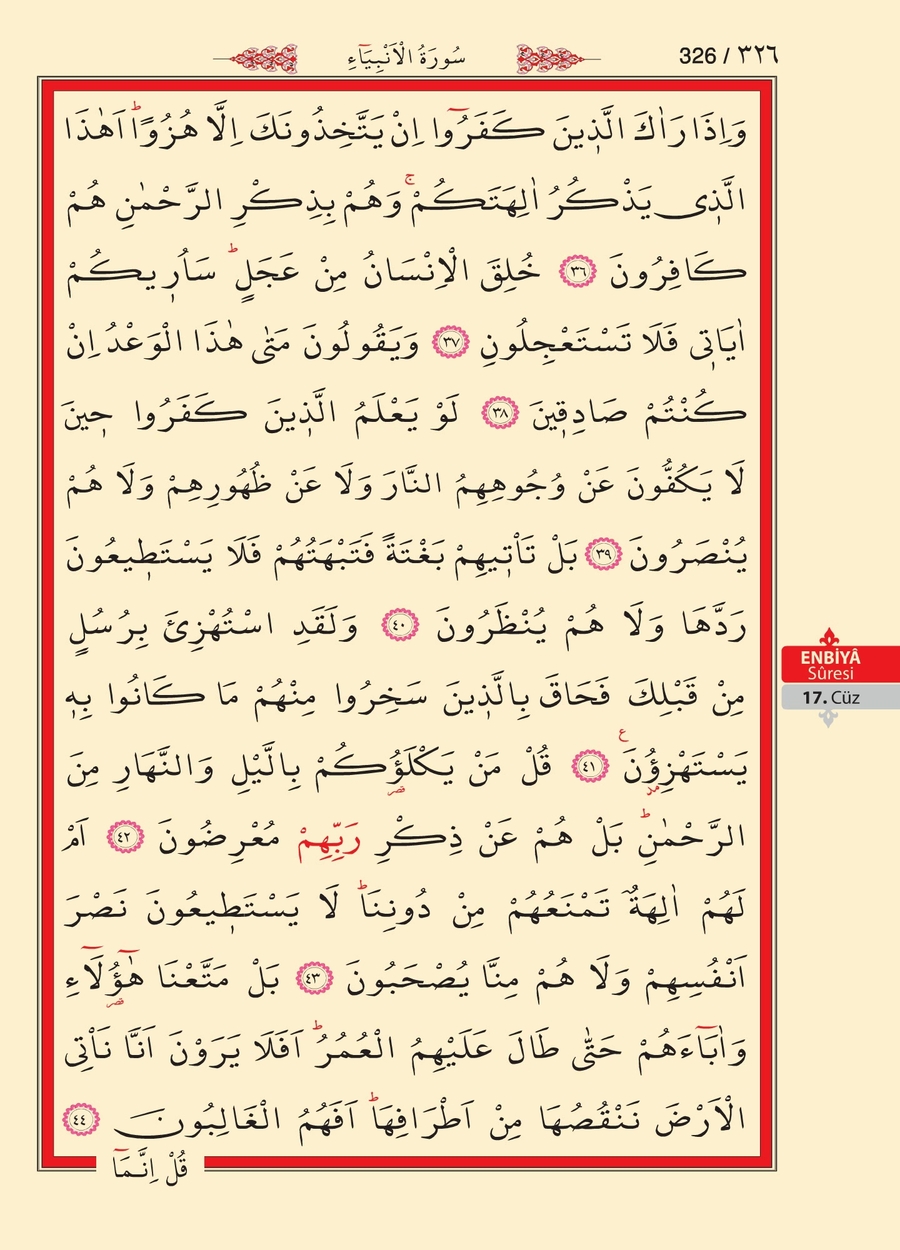 سُورَةُ الْاَنْبِيَٓاءِ
326 / ٣٢٦
وَاِذَا رَاٰكَ الَّذ۪ينَ كَفَرُٓوا اِنْ يَتَّخِذُونَكَ اِلَّا هُزُوًاۜ اَهٰذَا
الَّذ۪ي يَذْكُرُ اٰلِهَتَكُمْۚ وَهُمْ بِذِكْرِ الرَّحْمٰنِ هُمْ
كَافِرُونَ ٣٦ خُلِقَ الْاِنْسَانُ مِنْ عَجَلٍۜ سَاُر۪يكُمْ
اٰيَات۪ي فَلَا تَسْتَعْجِلُونِ ٣٧ وَيَقُولُونَ مَتٰى هٰذَا الْوَعْدُ اِنْ
كُنْتُمْ صَادِق۪ينَ ٣٨ لَوْ يَعْلَمُ الَّذ۪ينَ كَفَرُوا ح۪ينَ
لَا يَكُفُّونَ عَنْ وُجُوهِهِمُ النَّارَ وَلَا عَنْ ظُهُورِهِمْ وَلَا هُمْ
يُنْصَرُونَ ٣٩ بَلْ تَأْت۪يهِمْ بَغْتَةً فَتَبْهَتُهُمْ فَلَا يَسْتَط۪يعُونَ
رَدَّهَا وَلَا هُمْ يُنْظَرُونَ ٤٠ وَلَقَدِ اسْتُهْزِئَ بِرُسُلٍ
مِنْ قَبْلِكَ فَحَاقَ بِالَّذ۪ينَ سَخِرُوا مِنْهُمْ مَا كَانُوا بِه۪
يَسْتَهْزِؤُ۫نَ۟ ٤١ قُلْ مَنْ يَكْلَؤُ۬كُمْ بِالَّيْلِ وَالنَّهَارِ مِنَ
الرَّحْمٰنِۜ بَلْ هُمْ عَنْ ذِكْرِ رَبِّهِمْ مُعْرِضُونَ ٤٢ اَمْ
لَهُمْ اٰلِهَةٌ تَمْنَعُهُمْ مِنْ دُونِنَاۜ لَا يَسْتَط۪يعُونَ نَصْرَ
اَنْفُسِهِمْ وَلَا هُمْ مِنَّا يُصْحَبُونَ ٤٣ بَلْ مَتَّعْنَا هٰٓؤُ۬لَٓاءِ
وَاٰبَٓاءَهُمْ حَتّٰى طَالَ عَلَيْهِمُ الْعُمُرُۜ اَفَلَا يَرَوْنَ اَنَّا نَأْتِي
الْاَرْضَ نَنْقُصُهَا مِنْ اَطْرَافِهَاۜ اَفَهُمُ الْغَالِبُونَ ٤٤
قُلْ اِنَّمَٓا
ENBİYÂ
Sûresi
17. Cüz